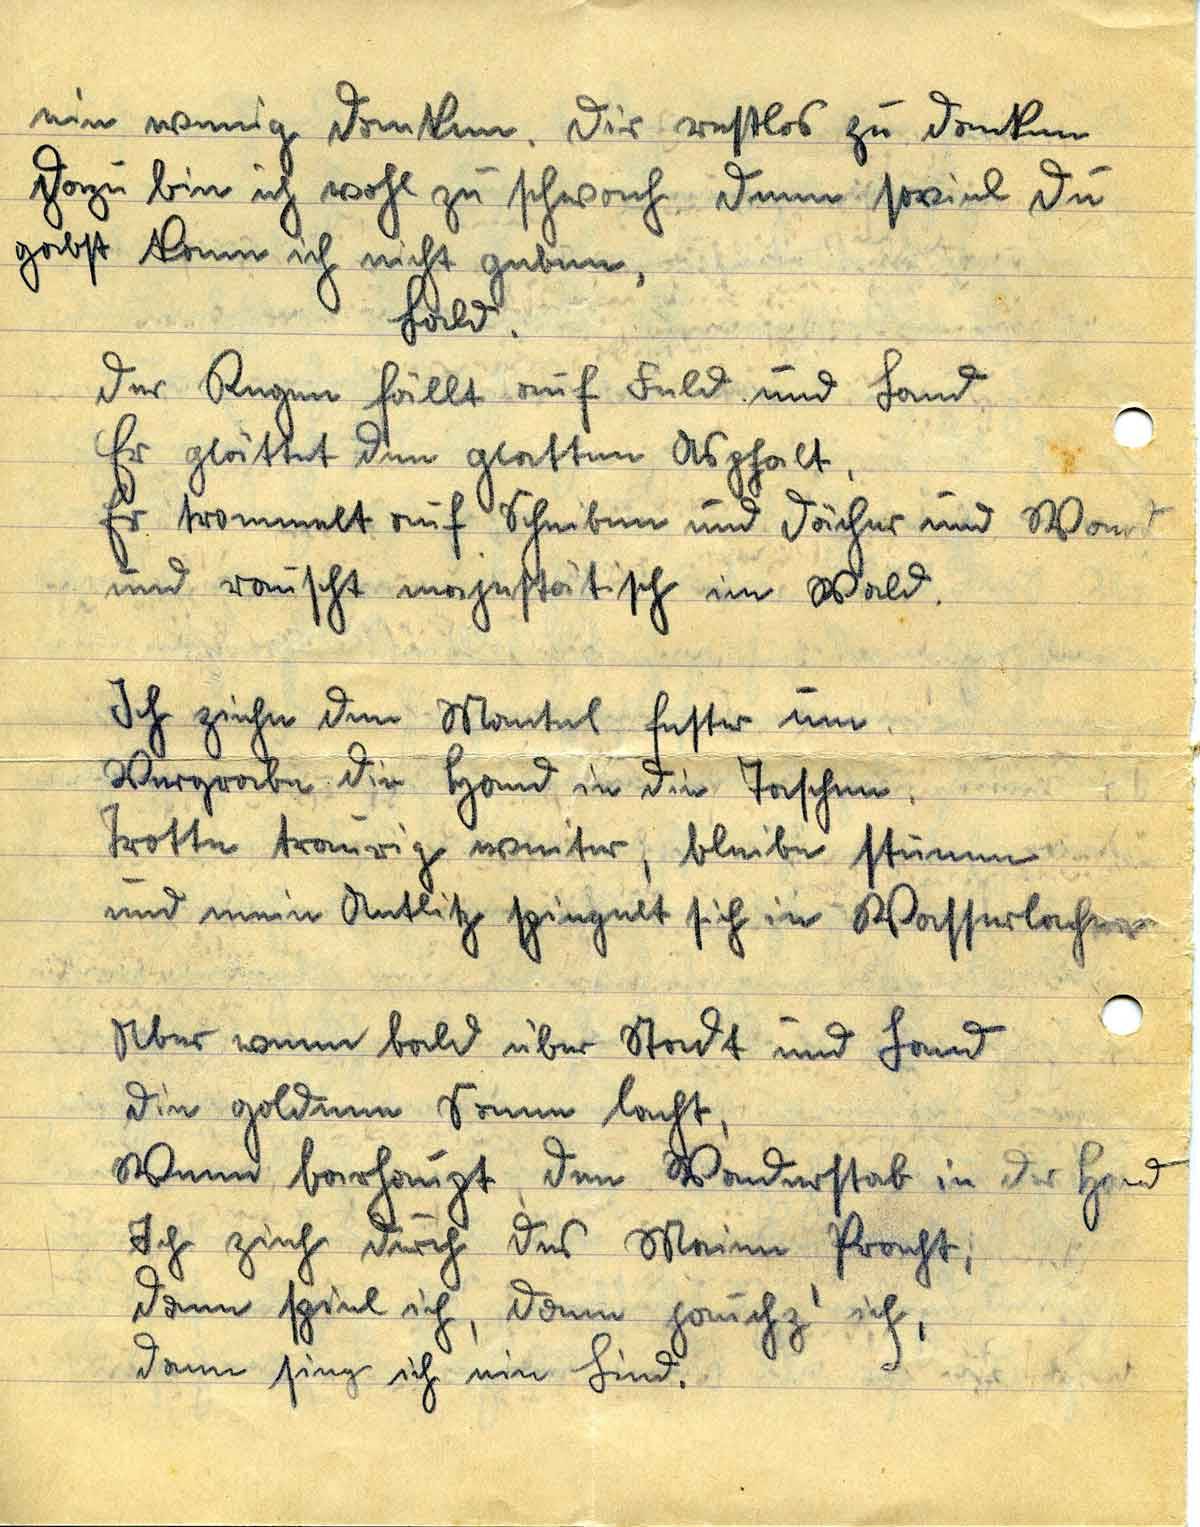 ein wenig danken. Dir restlos zu danken
Dazu bin ich wohl zu schwach denn soviel Du
gabst kann ich nicht geben,
Lald.
Der Regen fällt auf Feld und Land
Er glättet den glatten Asphalt,
Er trommelt auf Scheiben und Dächer und Wand
und rauscht majestätisch im Wald.
Ich ziehe den Mantel fester um.
Vergrabe die Hand in die Taschen,
Trotte traurig weiter, bleibe stumm
und mein Antlitz spiegelt sich in Wasserlachen
Aber wenn bald über Stadt und Land
die goldene Sonne lacht,
Wenn barhaupt, den Wanderstab in der Hand
Ich zieh durch des Maien Pracht,
dann spiel ich, dann jauchz' ich,
dann sing ich ein Lied.